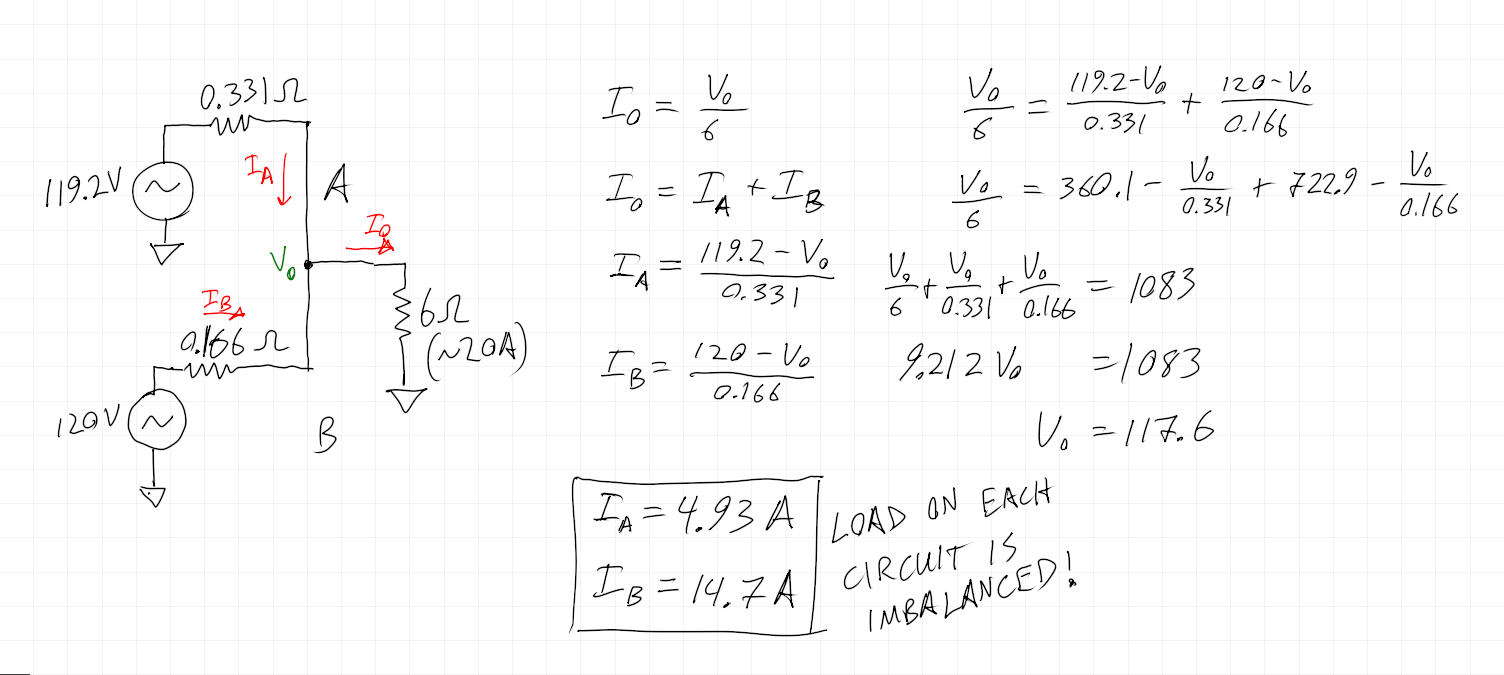 0.331Ω
119.2V
I_A
A
I_O
V_o
I_B
0.166Ω
6Ω
(~20A)
120V
B
I_O = V_o/6
I_O = I_A + I_B
I_A = (119.2 - V_o)/0.331
I_B = (120 - V_o)/0.166
V_o/6 = (119.2 - V_o)/0.331 + (120 - V_o)/0.166
V_o/6 = 360.1 - V_o/0.331 + 722.9 - V_o/0.166
V_o/6 + V_o/0.331 + V_o/0.166 = 1083
9.212 V_o = 1083
V_o = 117.6
I_A = 4.93 A
I_B = 14.7 A
LOAD ON EACH
CIRCUIT IS
IMBALANCED!